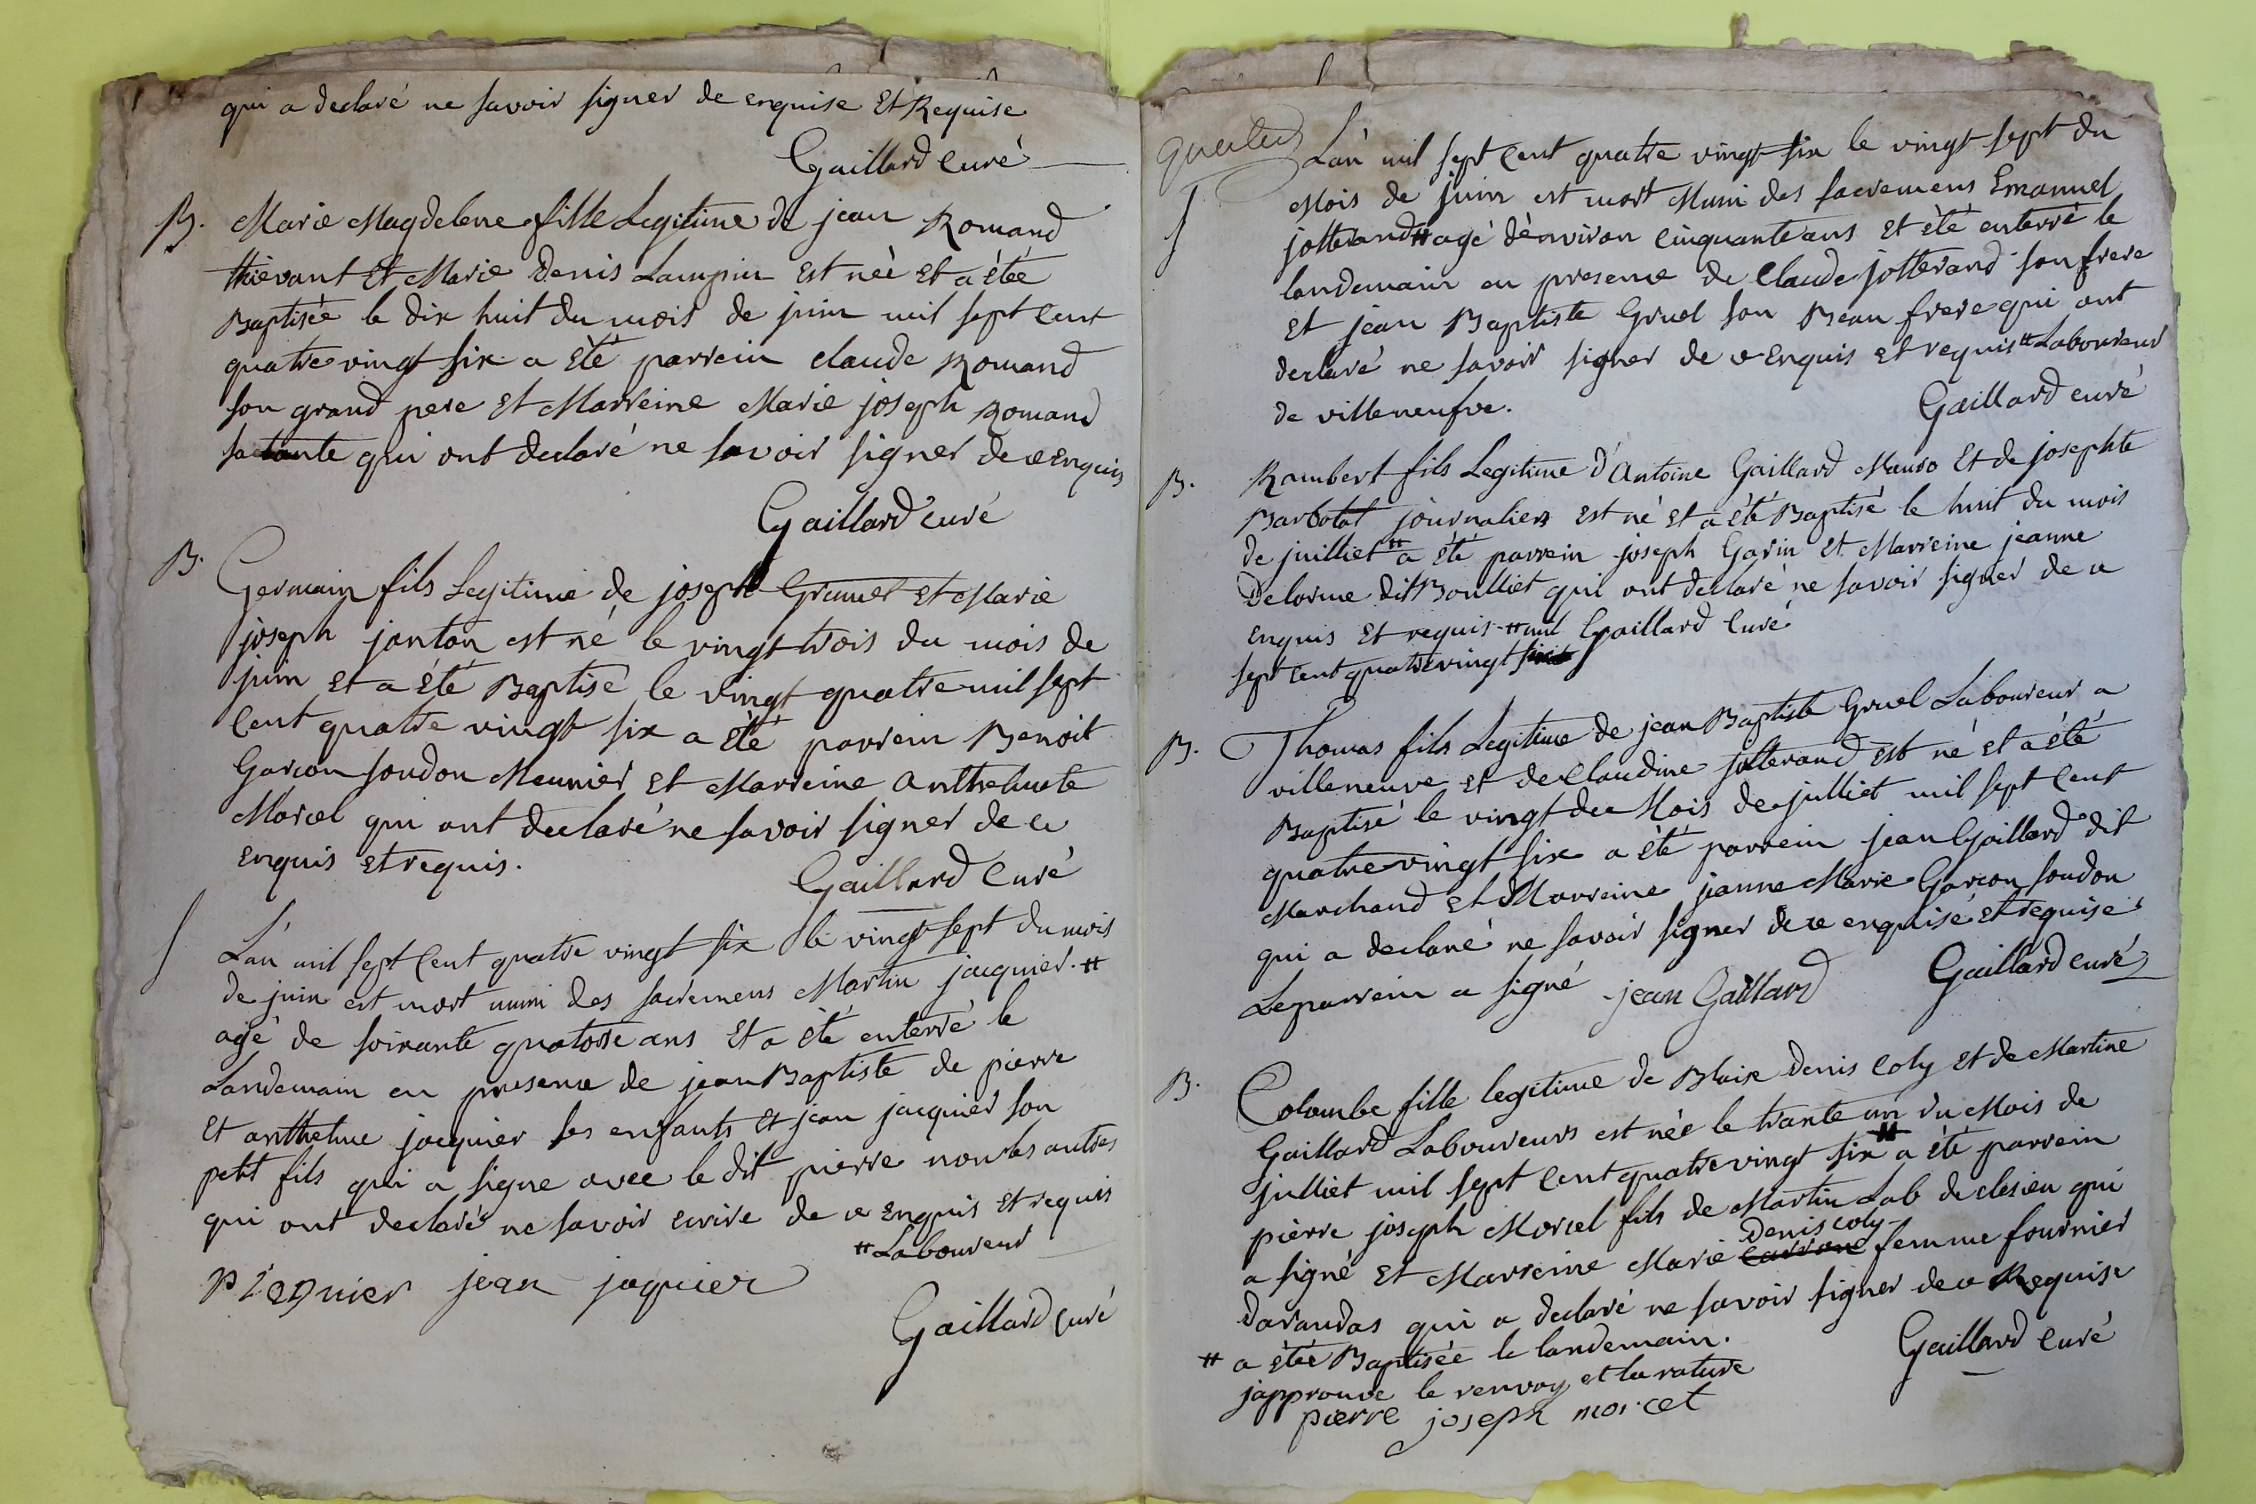 qui a declaré ne savoir signer de enquise Et Requise
Gaillard curé
B. Marie Magdelene fille Legitime de jean Romand
thievant Et Marie Denis Lampin Est née et a étée
Baptisée le dix huit du mois de juin mil sept cent
quatre vingt six a été parrein claude Romand
son grand pere et Marreine Marie joseph Romand
sa tante qui ont declaré ne savoir signer de ce enquis
Gaillard curé
B. Germain fils Legitime de joseph Grumet et Marie
joseph janton est né le vingt trois du mois de
juin et a été Baptisé le vingt quatre mil sept
cent quatre vingt six a été parrein Benoit
Garcon soudon Meunier et Marreine anthelmete
Morcel qui ont declaré ne savoir signer de ce
enquis et requis.
Gaillard curé
L'an mil sept cent quatre vingt six le vingt sept du mois
de juin est mort muni des sacremens Martin jacquier #
agé de soixante quatorse ans Et a été enterré le
Landemain en presence de jean Baptiste de pierre
et anthelme jacquier ses enfants et jean jacquier son
petit fils qui a signé avec le dit pierre non les autres
qui ont declaré ne savoir ecrire de ce enquis et requis
# Laboureur
jean jaquier
Gaillard curé
L'an mil sept cent quatre vingt six le vingt sept du
Mois de juin est mort Muni des sacremens Emanuel
jotterand # agé d'environ cinquante ans et été enterré le
landemain en presence de Claude jotterand son frere
et jean Baptiste Gruel son Beau frere qui ont
declaré ne savoir signer de ce Enquis et requis # Laboureur
de villeneufve.
Gaillard curé
B. Rambert fils Legitime d'Antoine Gaillard Et de josephte
Barbolat journaliers est né et a été Baptisé le huit du mois
de juilliet # a été parrein joseph Garin et Marreine jeanne
Delorme dit Boulliet qui ont declaré ne savoir signer de ce
enquis et requis # mil Gaillard Curé
sept cent quatre vingt six
B. Thomas fils Legitime de jean Baptiste Gruel Laboureur a
villeneuve et de Claudine jotterand est né et a été
Baptisé le vingt du Mois de julliet mil sept cent
quatre vingt six a été parrein jean Gaillard dit
Marchand et Marreine janne Marie Garcon soudon
qui a declaré ne savoir signer de ce enquise et requise
Le parrein a signé jean Gaillard Gaillard curé
B. Colombe fille legitime de Blaise Denis Coly et de Martine
Gaillard Laboureurs est née le trante un du Mois de
julliet mil sept cent quatre vingt six # a été parrein
pierre joseph Morcel fils de Martin Lab de clesieu qui
Denis coly
a signé et Marreine Marie femme fournier
darandas qui a declaré ne savoir signer de ce Requise
# a étée Baptisée le landemain. Gaillard curé
japprouve le renvoy et la rature
pierre joseph morcel